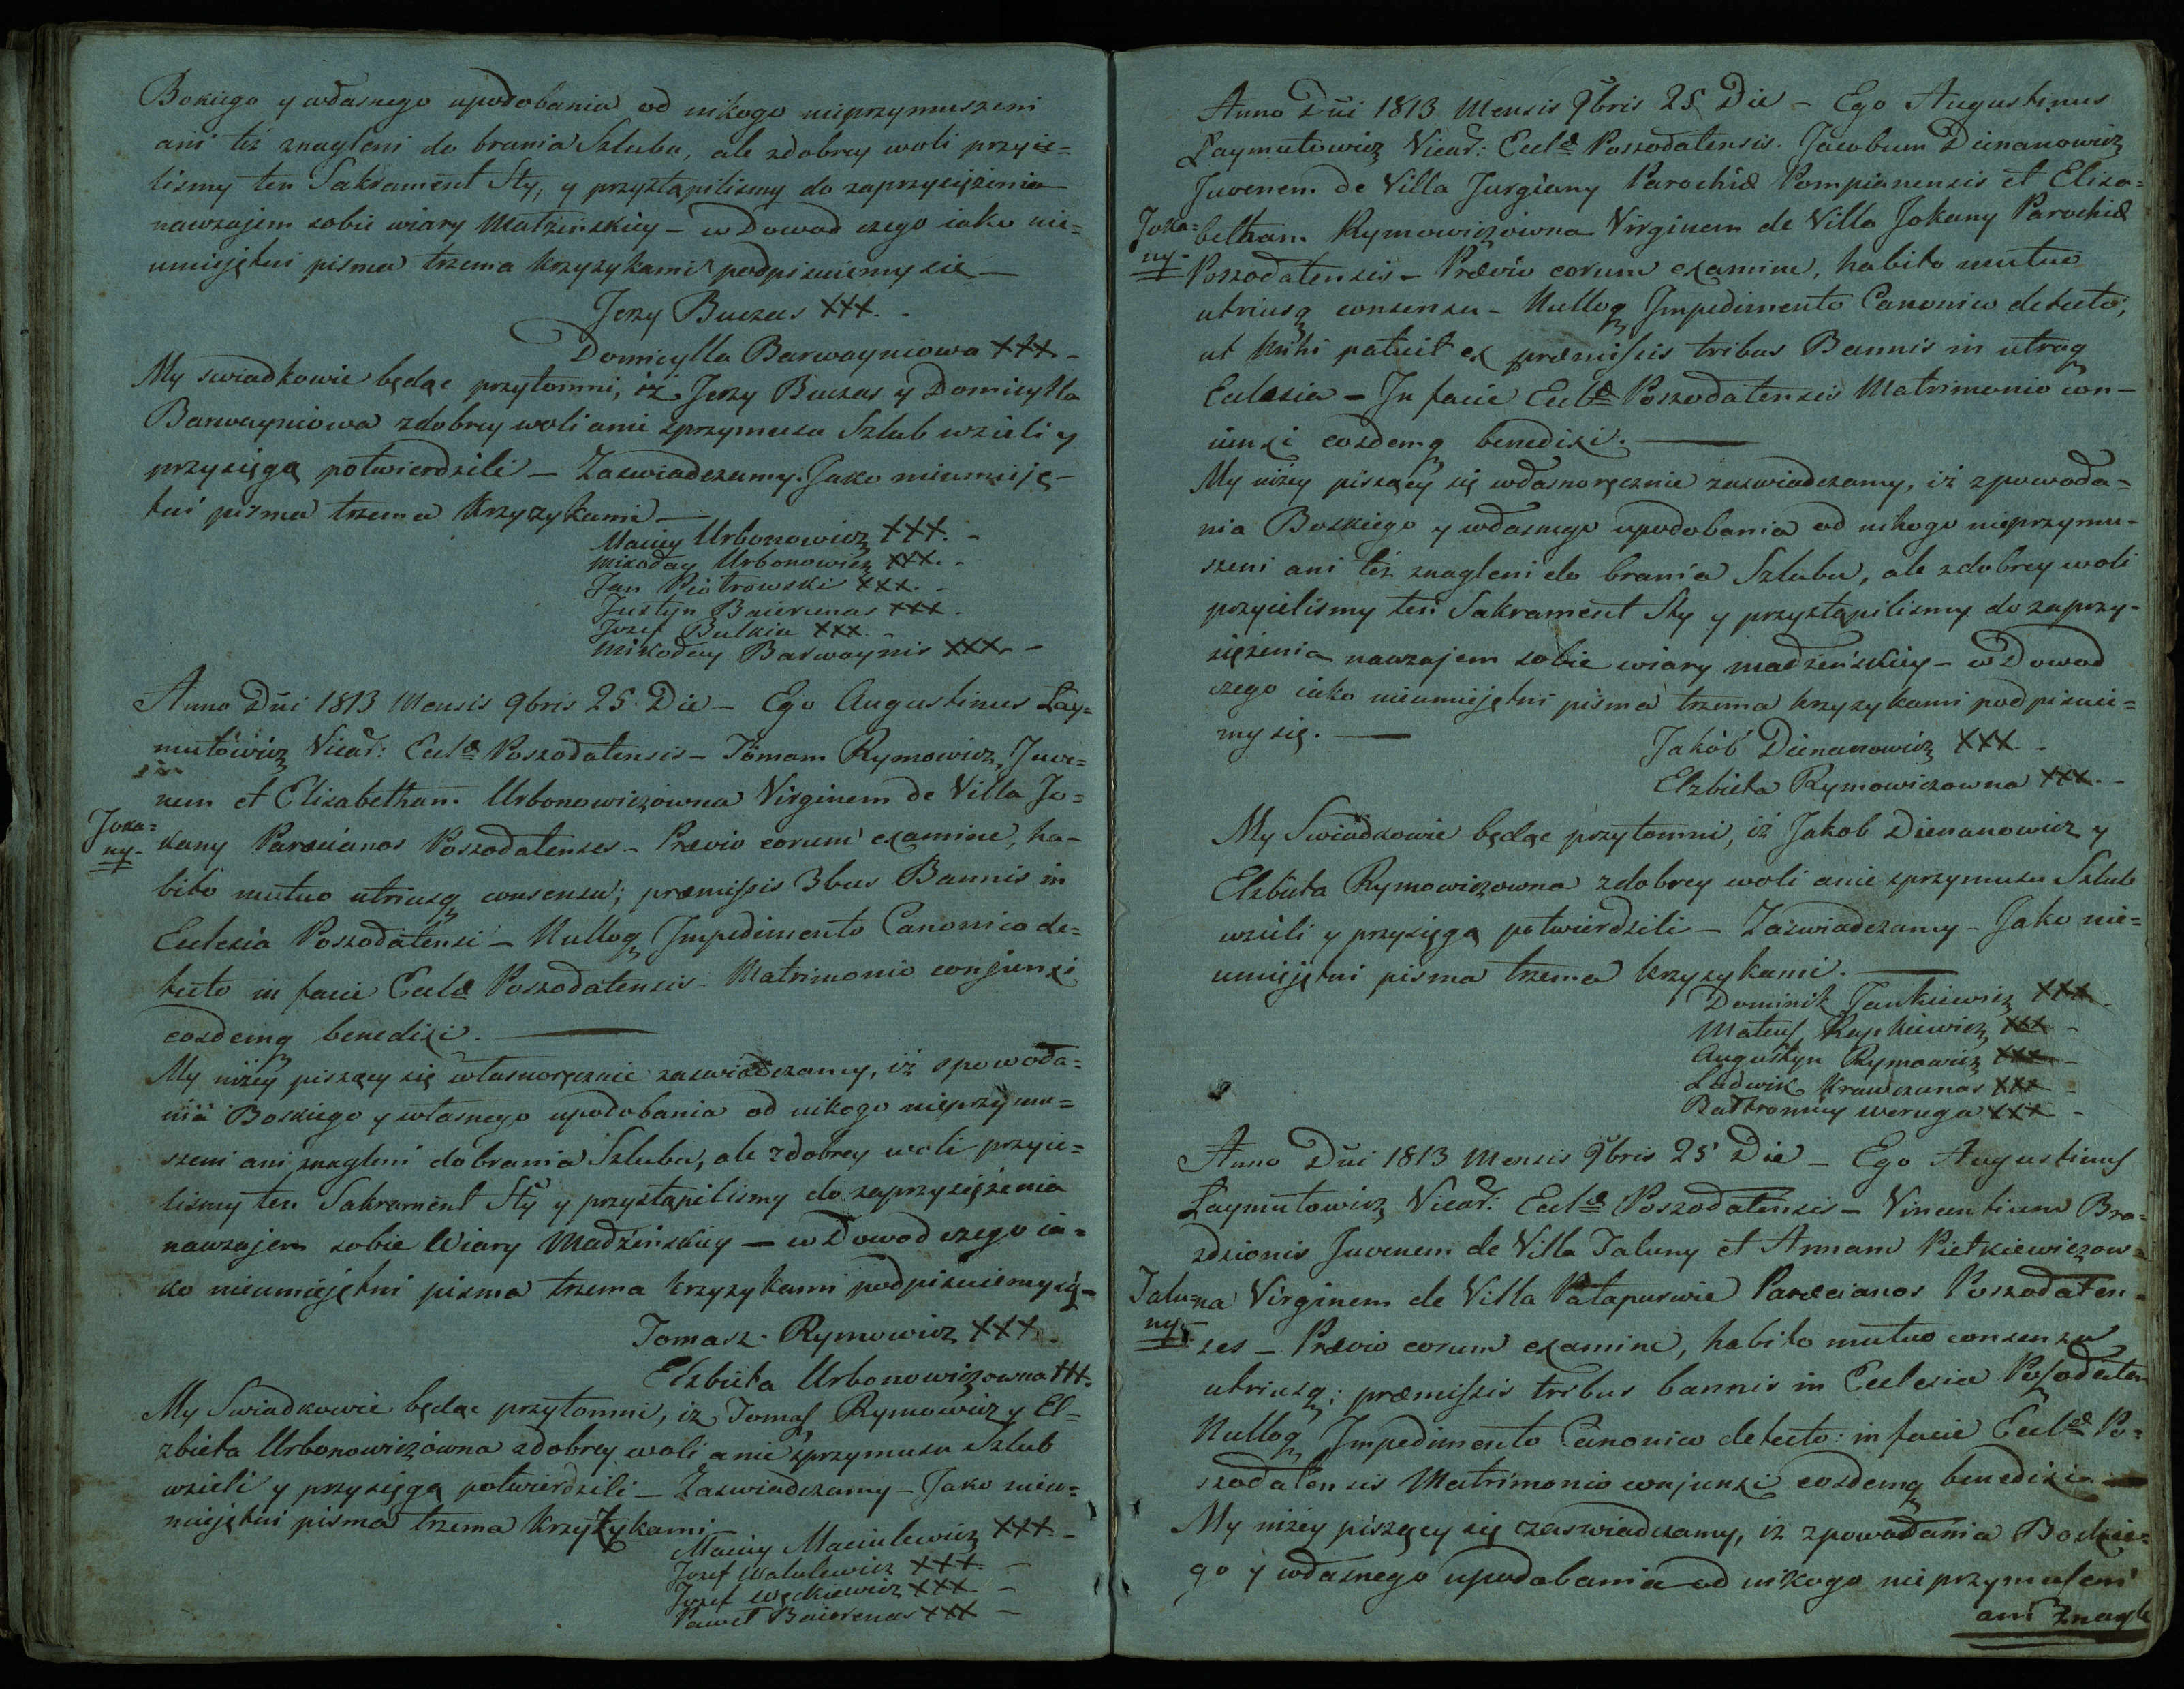 Boskiego y własnego upodobania od nikogo nieprzymuszeni
ani też znagleni do brania Szlubu, ale zdobrey woli przyie=
lismy ten Sakrament Sty, y przystąpilismy do zaprzysiężenia
nawzajem sobie wiary Małżeńskiey – w Dowod czego iako nie=
umiejętni pisma trzema krzyzykami podpisuiemy sie —
Jerzy Buczas XXX. -
Domicylla Barwayniowa XXX -
My swiadkowie będąc przytomni, iż Jerzy Buczas y Domicylla
Barwayniowa zdobrey woli anie zprzymusu Szlub wzieli y
przysięgą potwierdzili — Zaswiadczamy. Jako nieumieję-
tni pisma trzema Krzyzykami —
Maciey Urbonowicz XXX. -
Mikołay Urbonowicz XXX. -
Jan Piotrowski XXX. -
Justyn Baierunas XXX -
Jozef Butkie XXX -
Mikołay Barwaynis XXX. -
Anno Dñi 1813 Mensis 9bris 25 Die – Ego Augustinus Łay=
mutowicz Vicar: Eccl&ae Poszołatensis – Tomam Rymowicz Juve=
nem et Elisabetham Urbonowiczowna Virginem de Villa Jo=
Joka=
ny-
kany Paræcianos Poszołatenses – Prævio eorum examine, ha-
bito mutuo utriusq consensu; præmissis 3bus Bannis in
Ecclesia Poszołatensi – Nulloq Impedimento Canonico de=
tecto in facie Eccl&ae Poszołatensis Matrimonio conjunxi
eosdemq benedixi. —
My niżey piszący się własnoręcznie zaswiadczamy, iż zpowoła=
nia Boskiego y własnego upodobania od nikogo nieprzymu=
szeni ani znagleni do brania Szlubu, ale zdobrey woli przyie=
lismy ten Sakrament Sty y przystąpilismy do zaprzysiężenia
nawzajem sobie Wiary Madżeńskiey — w Dowod czego ia=
ko nieumiejętni pisma trzema krzyzykami podpisuiemy się -
Tomasz Rymowicz XXX
Elzbieta Urbonowiczowna XXX.
My Swiadkowie będąc przytomni, iz Tomas Rymowicz y El=
zbieta Urbonowiczówna zdobrey woli anie zprzymusu Szlub
wzieli y przysięgą potwierdzili — Zaswiadczamy – Jako nieu=
miejętni pisma trzema Krzyżykami
Maciey Maciulewicz XXX -
Jozef Watulewicz XXX -
Jozef Węckiewicz XXX -
Paweł Baierenas XXX -
Anno Dñi 1813 Mensis 9bris 25 Die – Ego Augustinus
Łaymutowicz Vicar: Eccl&ae Poszołatensis. Jacobum Dienanowicz
Juvenem de Villa Jurgiany Parochiæ Pompianensis et Elisa=
Joka=
ny-
betham Rymowiczówna Virginem de Villa Jokany Parochiæ
Poszołatensis – Prævio eorum examine, habito mutuo
utriusq consensu – Nulloq Impedimento Canonico detecto;
ut Mihi patuit ex præmissis tribus Bannis in utraq
Ecclesia – In facie Eccl&ae Poszołatensis Matrimonio con-
iunxi eosdemq benedixi. —
My niżey piszący się własnoręcznie zaswiadczamy, iż zpowoła=
nia Boskiego y własnego upodobania od nikogo nieprzymu-
szeni ani też znagleni do brania Szlubu, ale zdobrey woli
przyielismy ten Sakrament Sty y przystąpilismy do zaprzy-
siężenia nawzajem sobie wiary madżeńskiey – w Dowod
czego iako nieumiejętni pisma trzema krzyzykami podpisuie=
my się. —
Jakób Dienanowicz XXX. -
Elzbieta Rymowiczowna XXX. -
My Swiadkowie będąc przytomni, iż Jakob Dienanowicz y
Elzbieta Rymowiczowna zdobrey woli anie zprzymusu Szlub
wzieli y przysięgą potwierdzili — Zaswiadczamy – Jako nie=
umiejętni pisma trzema krzyzykami. —
Dominik Jankiewicz XXX -
Mateus Rupkiewicz XXX -
Augustyn Rymowicz XXX -
Ludwik Krawczunas XXX -
Bałtromiey Weruga XXX -
Anno Dñi 1813 Mensis 9bris 25 Die – Ego Augustinus
Łaymutowicz Vicar: Eccl&ae Poszołatensis – Vincentium Bra=
zdzionis Juvenem de Villa Taluny et Annam Pietkiewiczow=
Talu=
ny-
na Virginem de Villa Patapurwie Paræcianos Poszołaten=
ses – Prævio eorum examine, habito mutuo consensu
utriusq: præmissis tribus bannis in Ecclesia Posołaten
Nulloq Impedimento Canonico detecto: in facie Eccl&ae Po=
szołatensis Matrimonio conjunxi eosdemq benedixi —
My niżey piszący się zaswiadczamy, iż zpowołania Boskie=
go y własnego upodobania od nikogo nieprzymuseni
ani znagle